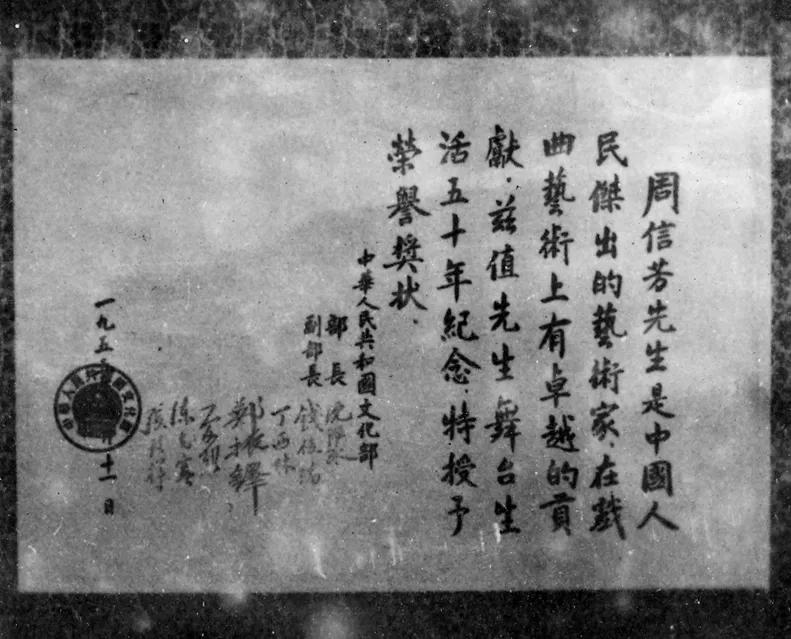 周信芳先生是中國人
民傑出的藝術家、在戲
曲藝術上有卓越的貢
獻．茲值先生舞台生
活五十年紀念、特授予
榮譽獎狀．
中華人民共和國文化部
部長 沈雁冰
副部長 錢俊瑞
丁西林
鄭振鐸
夏衍
陳克寒
張致祥
一九五
十一日